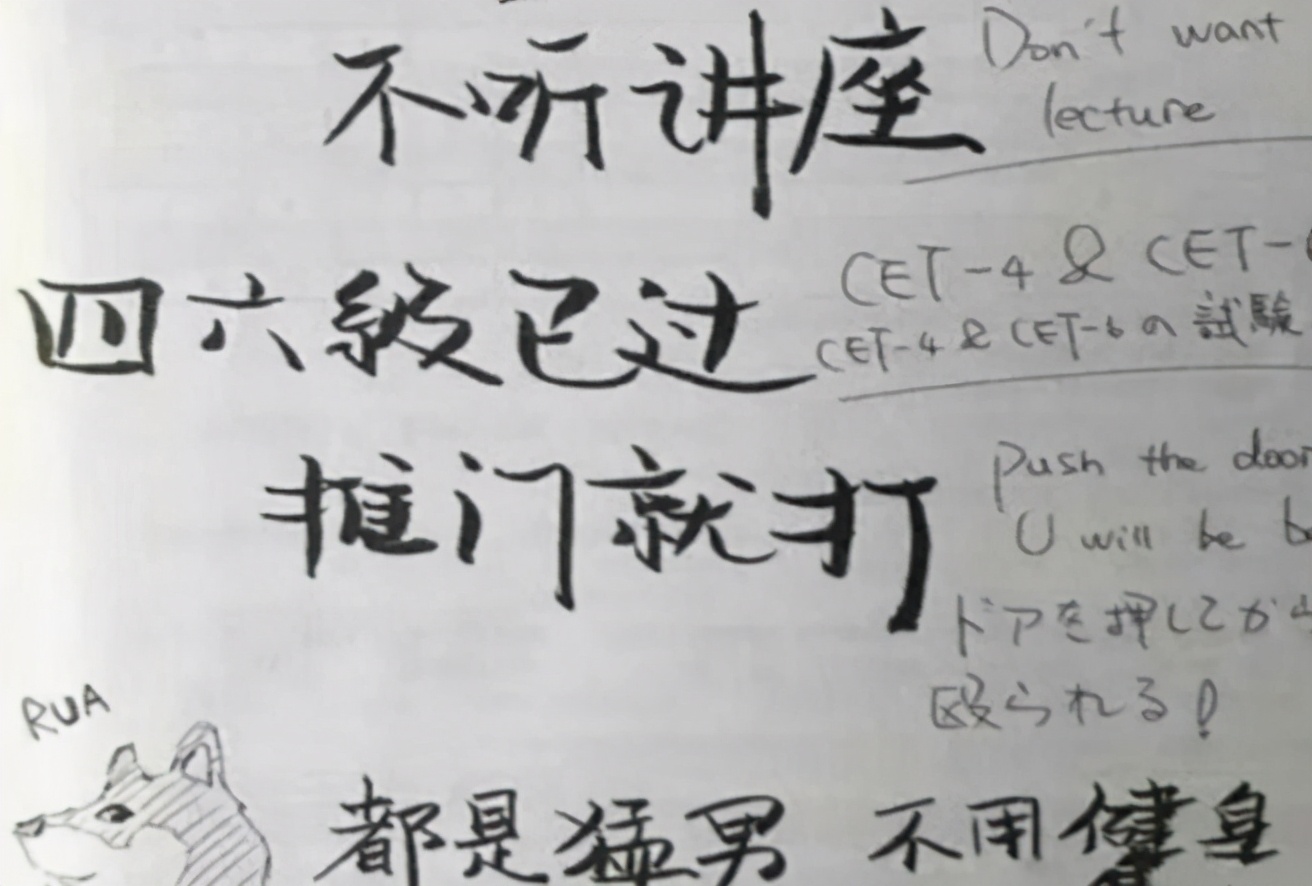 不听讲座
Don't want
lecture
四六级已过
CET-4 & CET-
CET-4 & CET-6の試験
推门就打
Push the door
U will be
ドアを押してから
殴られる!
RUA
都是猛男 不用健身